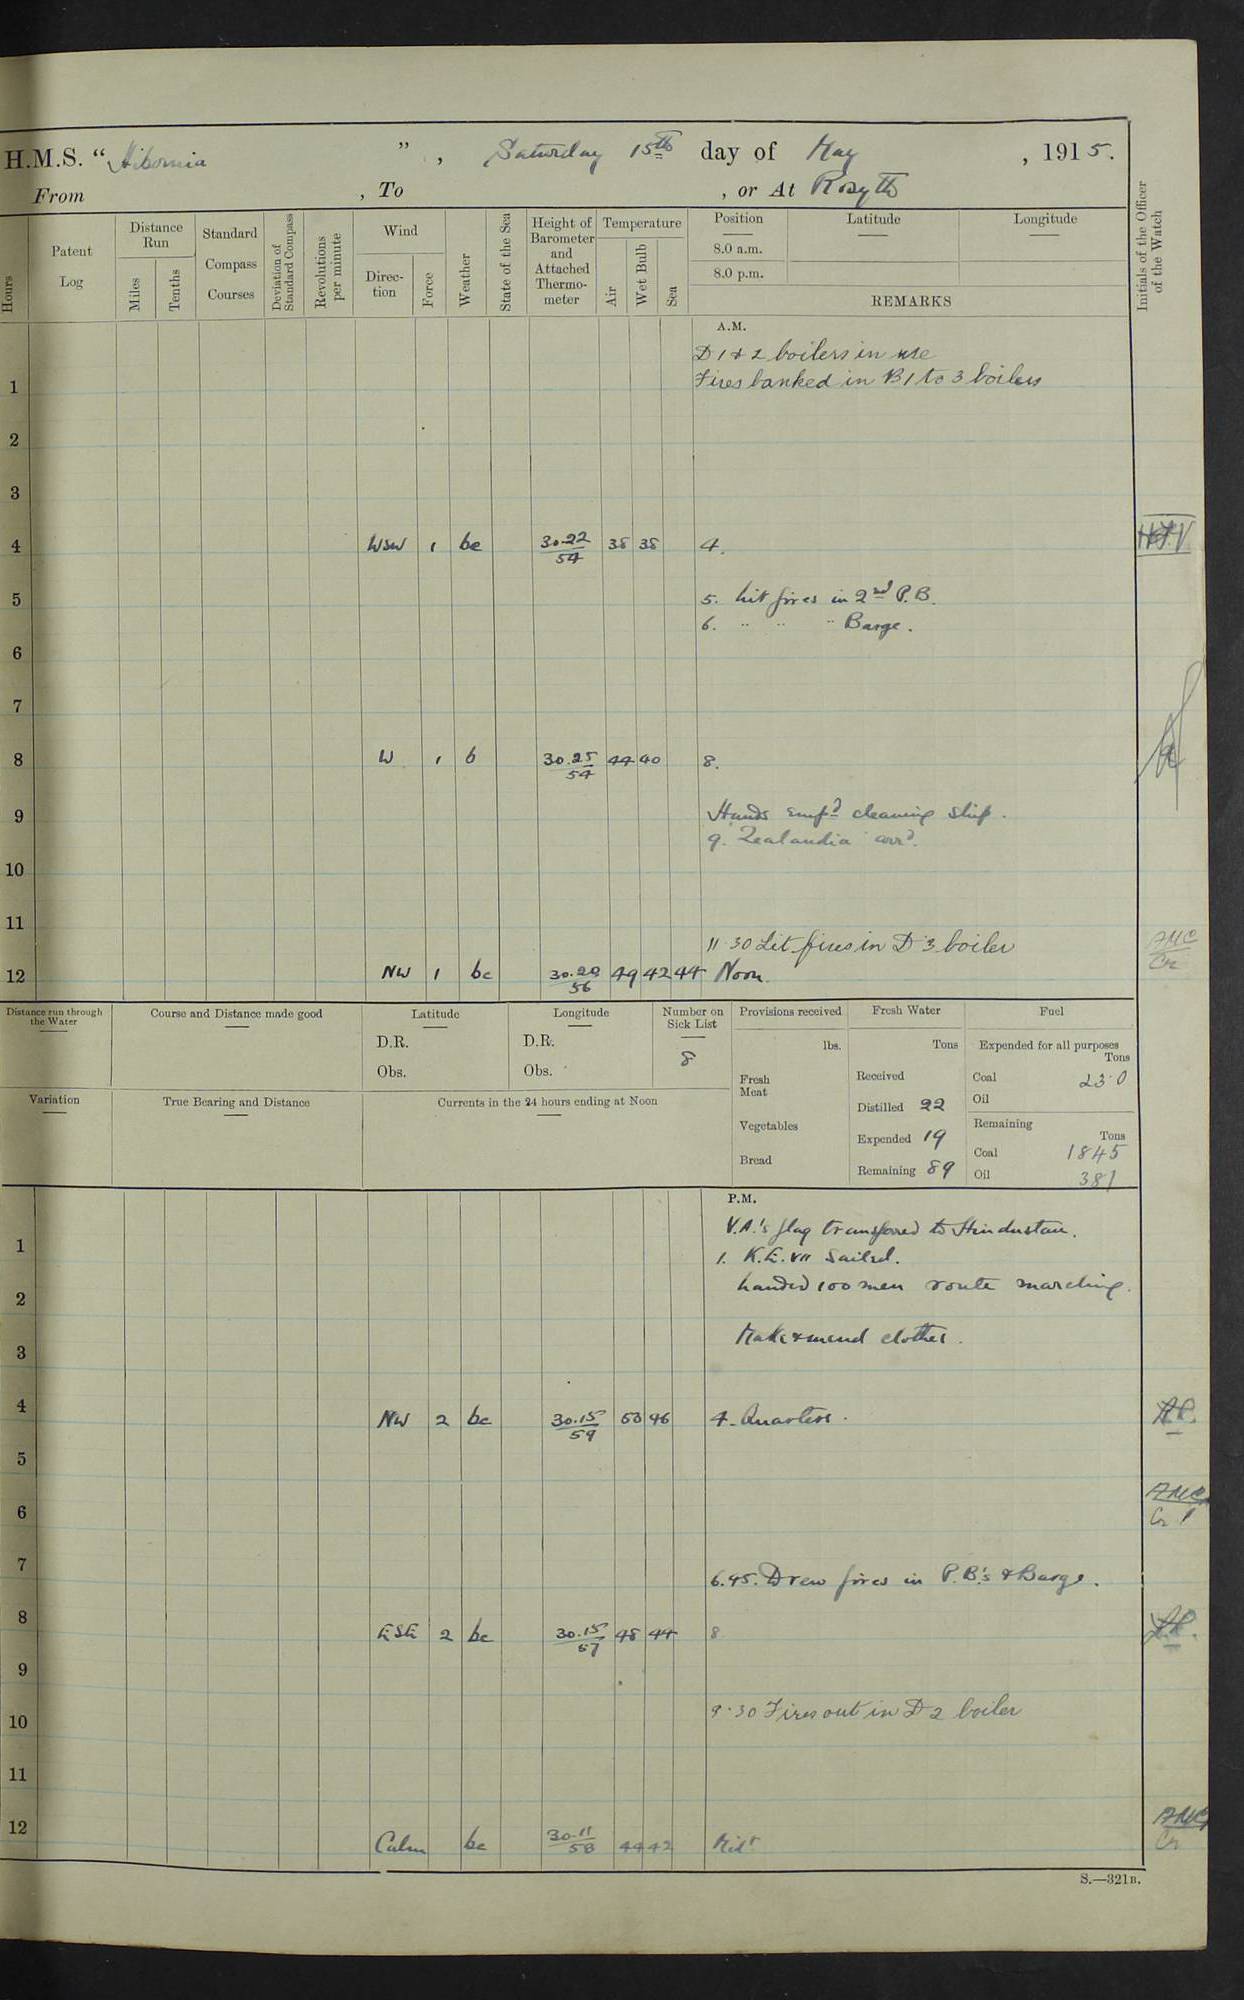 H.M.S. “Hibernia ” , Saturday 15th day of May , 1915.
From , To , or At Rosyth
Hours
Patent Log
Distance Run
Miles
Tenths
Standard Compass Courses
Deviation of Standard Compass
Revolutions per minute
Wind
Direction
Force
Weather
State of the Sea
Height of Barometer and Attached Thermometer
Temperature
Air
Wet Bulb
Sea
Position Latitude Longitude
8.0 a.m.
8.0 p.m.
REMARKS
Initials of the Officer of the Watch
A.M.
D 1 & 2 boilers in use
1 Fires banked in B1 to 3 boilers
2
3
4 WSW 1 bc 30.22/54 38 38 4.
5 5. Lit fires in 2nd P.B.
6. " " " Barge.
6
7
8 W 1 b 30.25/54 44 40 8.
9 Hands emp'd cleaning ship.
9. Zealandia arr'd.
10
11
11.30 Lit fires in D 3 boiler AMC
12 NW 1 bc 30.20/56 49 42 44 Noon.
Distance run through the Water
Course and Distance made good
Latitude
D.R.
Obs.
Longitude
D.R.
Obs.
Number on Sick List
8
Provisions received
lbs.
Fresh Meat
Vegetables
Bread
Fresh Water
Tons
Received
Distilled 22
Expended 19
Remaining 89
Fuel
Expended for all purposes
Tons
Coal 23.0
Oil
Remaining
Tons
Coal 1845
Oil 381
Variation
True Bearing and Distance
Currents in the 24 hours ending at Noon
P.M.
V.A.'s flag transferred to Hindustan.
1 1. K.E. VII Sailed.
2 Landed 100 men route marching.
3 Make & mend clothes.
4 NW 2 bc 30.15/59 53 46 4. Quarters.
5
6 AMC
7 6.45. Drew fires in P.B.'s & Barge.
8 ESE 2 bc 30.15/57 48 44 8
9
10 9.30 Fires out in D 2 boiler
11
12 Calm bc 30.11/58 44 42 Midt AMC
S.—321B.